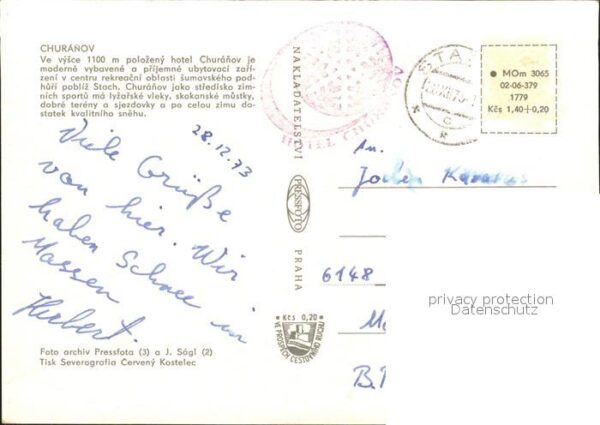 CHURÁŇOV
Ve výšce 1100 m položený hotel Churáňov je
moderně vybavené a příjemné ubytovací zaří-
zení v centru rekreační oblasti šumavského pod-
hůří poblíž Stach. Churáňov jako středisko zim-
ních sportů má lyžařské vleky, skokanské můstky,
dobré terény a sjezdovky a po celou zimu do-
statek kvalitního sněhu.
28.12.73
Viele Grüße
von hier. Wir
haben Schnee in
Massen
Hubert.
Foto archiv Pressfota (3) a J. Ságl (2)
Tisk Severografia Červený Kostelec
NAKLADATELSTVÍ
PRESSFOTO
PRAHA
HOTEL CHURÁŇOV
Kčs 0,20
VE PROSPĚCH CESTOVNÍHO RUCHU
MOm 3065
02-06-379
1779
Kčs 1,40+0,20
An.
Jochen
6148
privacy protection
Datenschutz